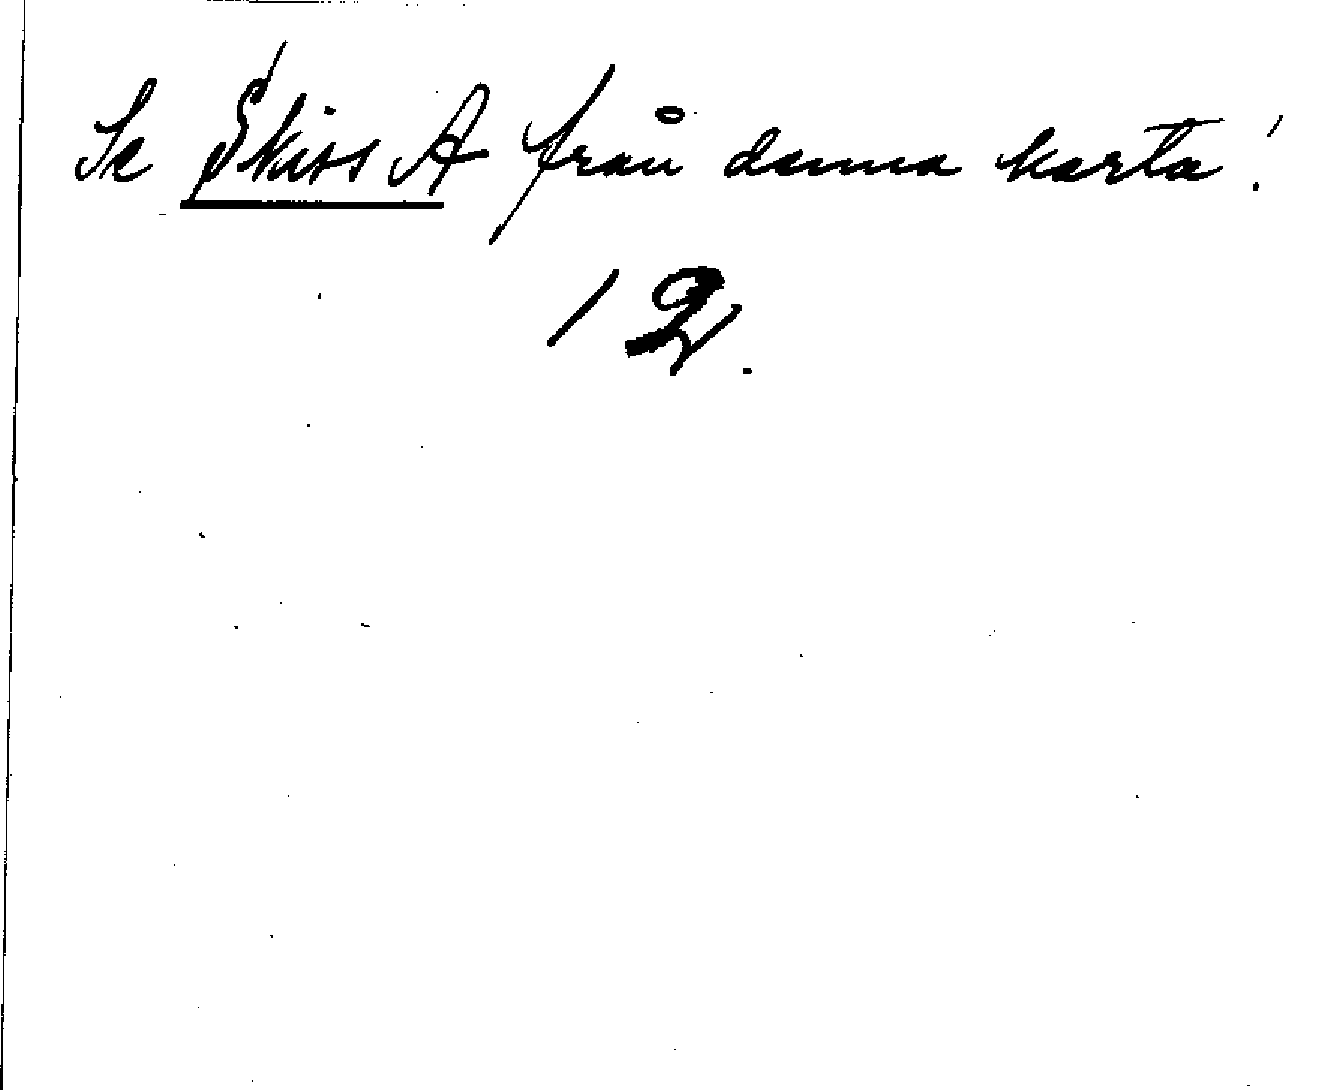 Se Skiss A från denna karta!
12.